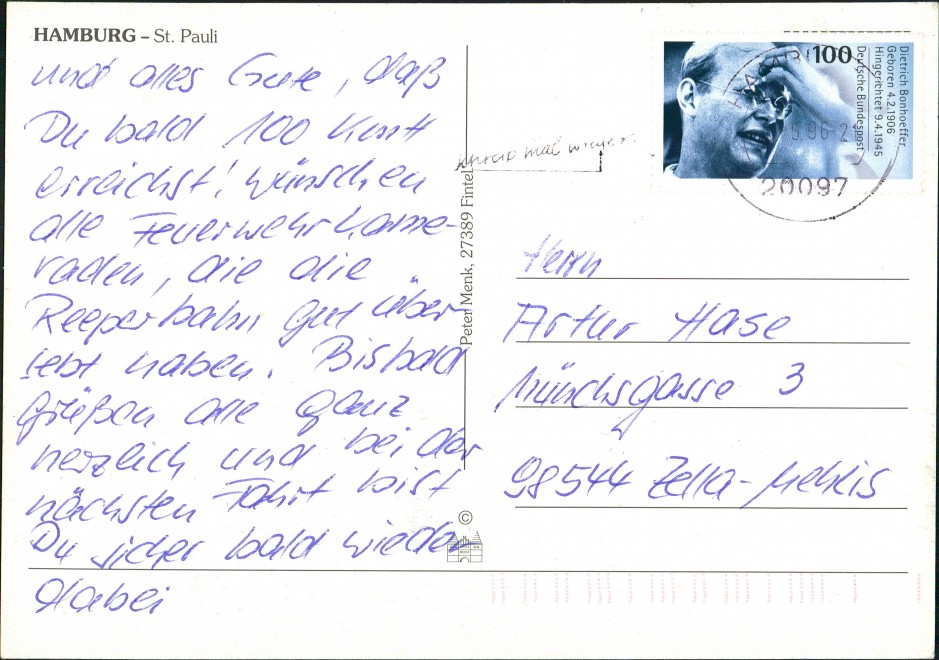 HAMBURG – St. Pauli
und alles Gute, daß
Du bald 100 km/h
erreichst! wünschen
alle Feuerwehrkame-
raden, die die
Reeperbahn gut über-
lebt haben. Bisbald
Grüßen alle ganz
herzlich und bei der
nächsten Fahrt bist
Du sicher bald wieder
dabei
mal wieder.
Peter Menk, 27389 Fintel
©
100
Dietrich Bonhoeffer
Geboren 4.2.1906
Hingerichtet 9.4.1945
Deutsche Bundespost
20097
Herrn
Artur Hase
Münchsgasse 3
98544 Zella-Mehlis